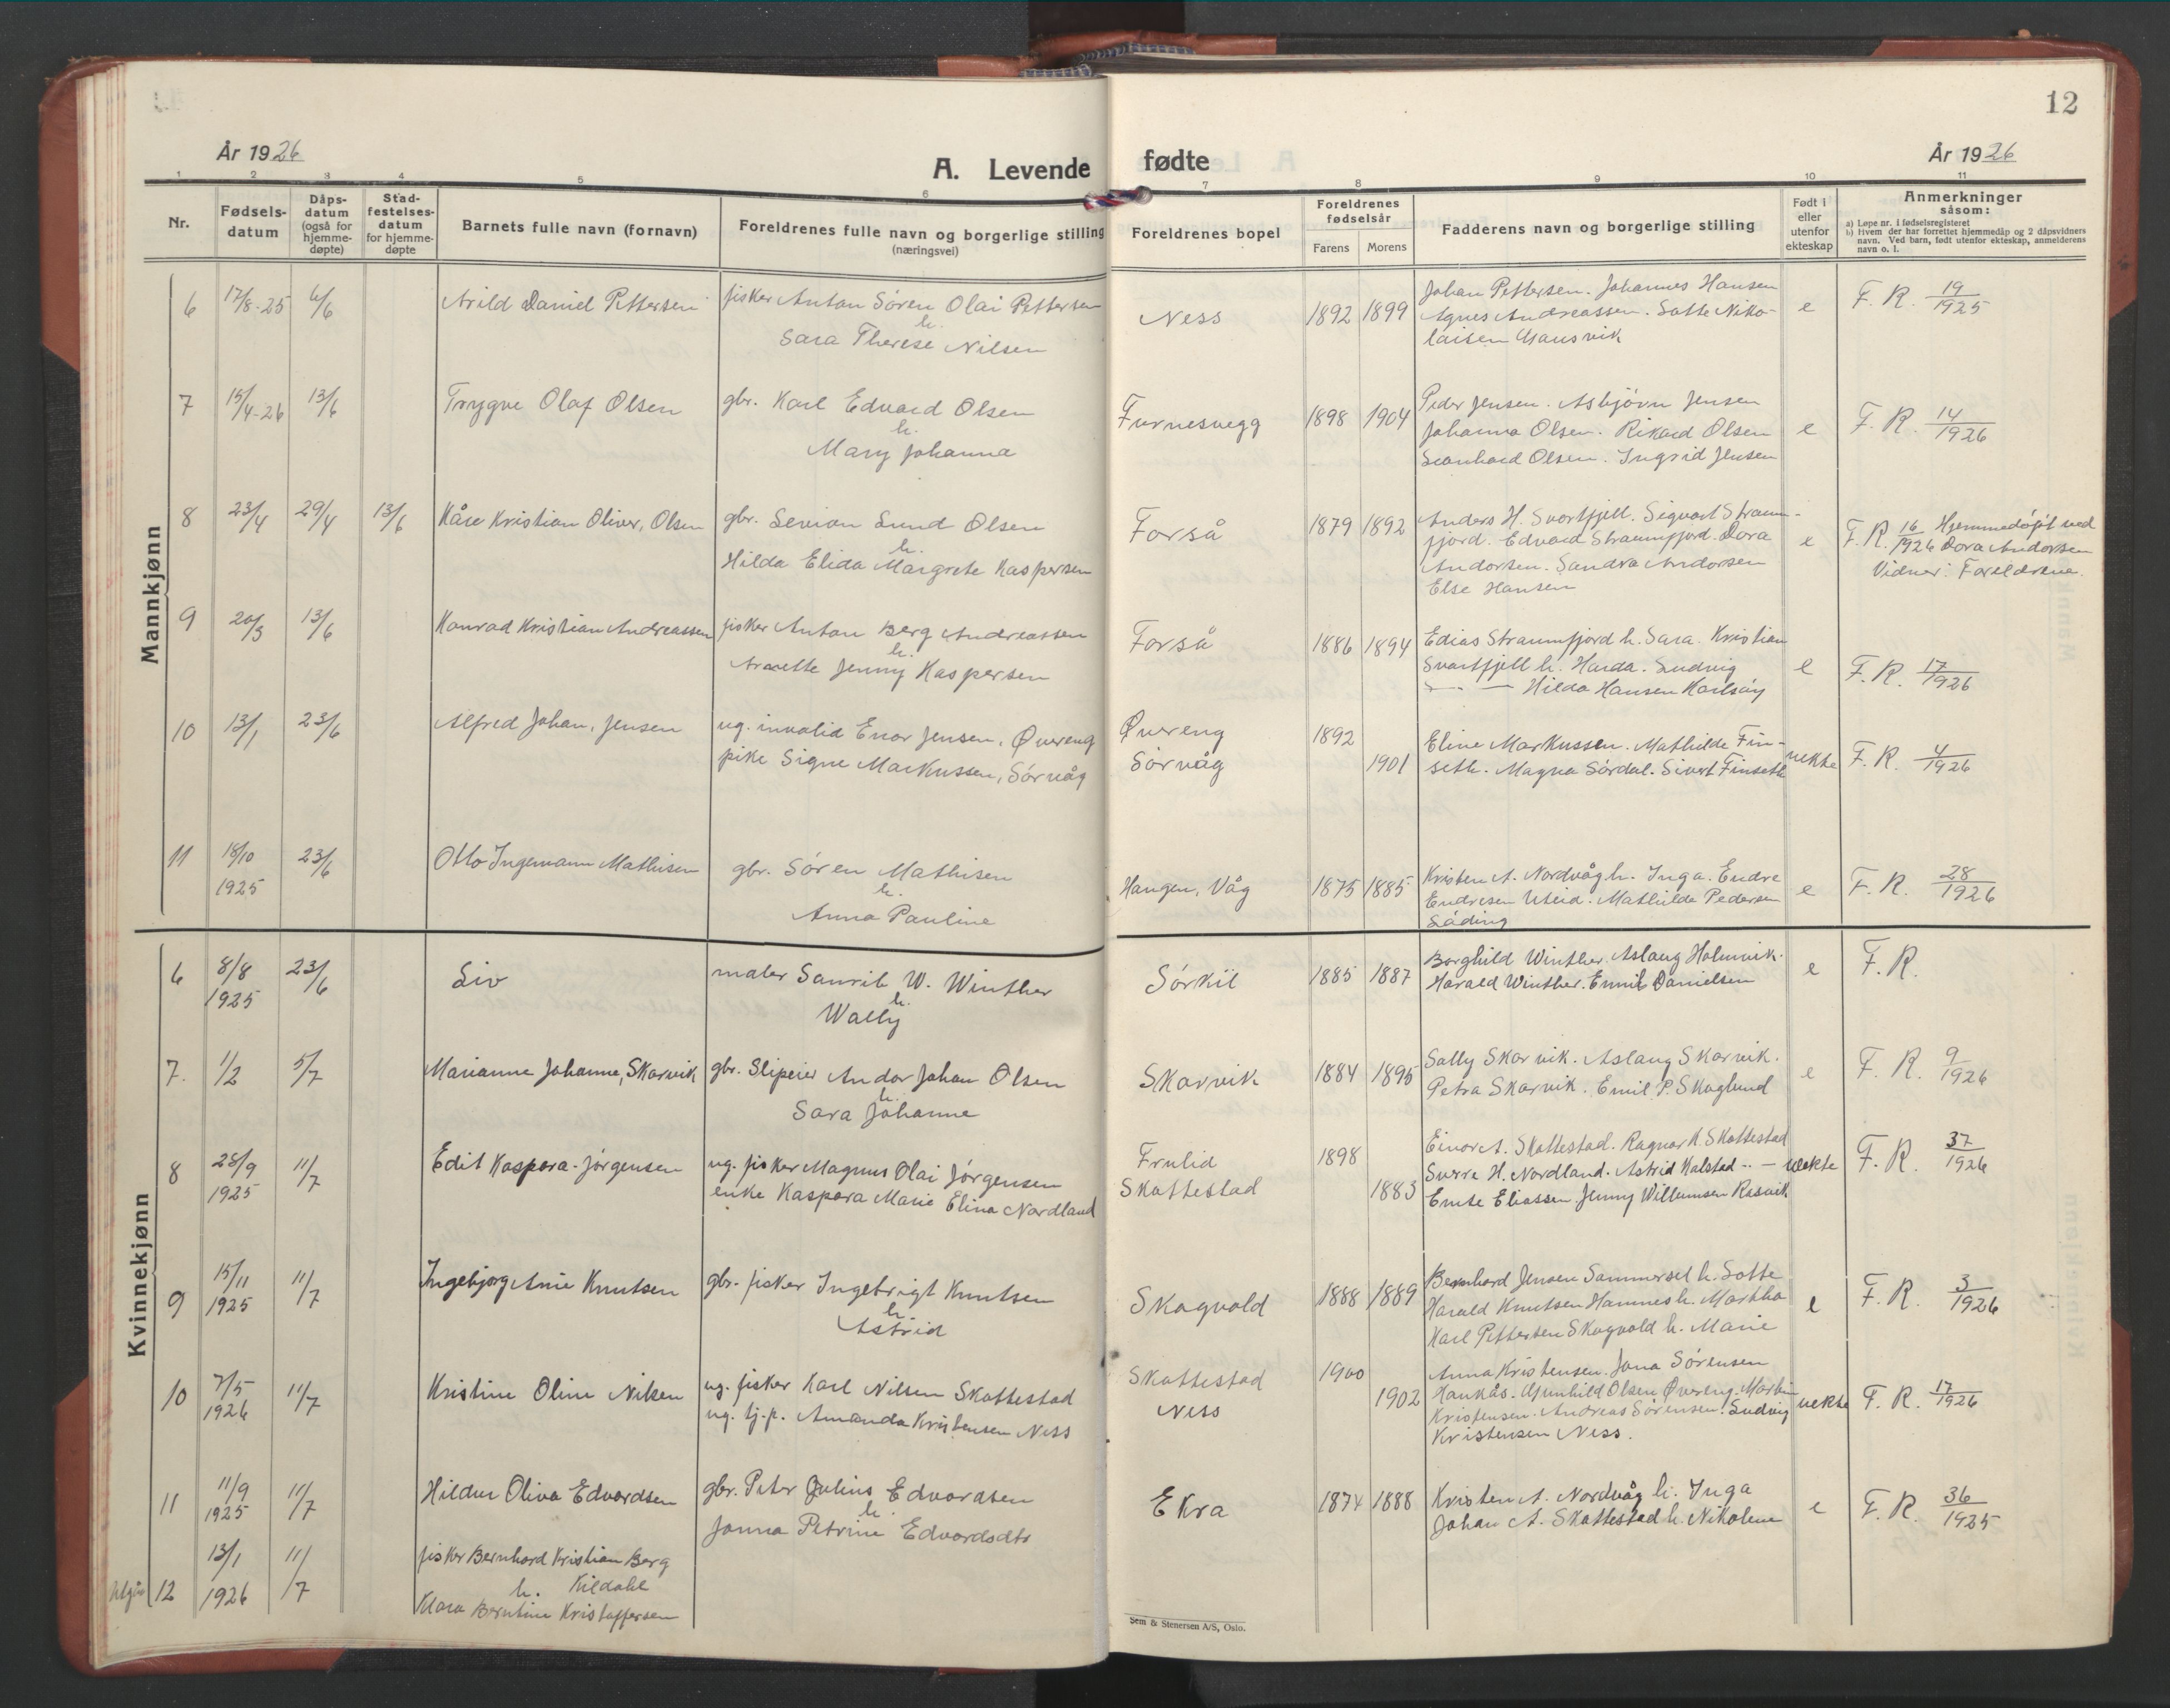 12
År 1926
A. Levende fødte
År 1926
1 2 3 4 5 6 7 8 9 10 11
Nr.
Fødsels-
datum
Dåps-
datum
(også for
hjemme-
døpte)
Stad-
festelses-
datum
for hjemme-
døpte
Barnets fulle navn (fornavn)
Foreldrenes fulle navn og borgerlige stilling
(næringsvei)
Foreldrenes bopel
Foreldrenes
fødselsår
Farens
Morens
Fadderens navn og borgerlige stilling
Født i
eller
utenfor
ekteskap
Anmerkninger
såsom:
a) Løpe nr. i fødselsregisteret
b) Hvem der har forrettet hjemmedåp og 2 dåpsvidners
navn. Ved barn, født utenfor ekteskap, anmelderens
navn o. l.
Mannkjønn
6 17/8-25 6/6 Arild Daniel Pettersen
fisker Anton Søren Olai Pettersen
h.
Sara Therese Nilsen
Ness 1892 1899
Johan Pettersen. Johannes Hansen
Agnes Andreassen. Lotte Niko-
laisen
e F. R. 19/1925
7 15/4-26 13/6 Trygve Olaf Olsen
gbr. Karl Edvard Olsen
h.
Mary Johanna
Furnesvegg 1898 1904
Peder Jensen. Asbjörn Jensen
Johanna Olsen. Rikard Olsen
Leonhard Olsen. Ingrid Jensen
e F. R. 14/1926
8 23/4 29/4 13/6 Kåre Kristian Oliver, Olsen
gbr. Sevrin Lund Olsen
h.
Hilda Elida Margrete Kaspersen
Forså 1879 1892
Anders H. Svartfjell. Sigvart Straum-
fjord. Edvard Straumfjord. Dora
Andorsen. Sandra Andorsen
Else Hansen
e F. R. 16/1926 Hjemmedøpt ved
Dora Andorsen
Vidner: Foreldrene.
9 20/3 13/6 Konrad Kristian Andreassen
fisker Anton Berg Andreassen
h.
Jenny Kaspersen
Forså 1886 1894
Edias Straumfjord h. Sara. Kristian
Svartfjell h. Harda. Ludvig
Hilda Hansen Karlsöy
e F. R. 17/1926
10 13/1 23/6 Alfred Johan, Jensen
ug. invalid Enor Jensen, Øvereng
pike Signe Markussen, Sörvåg
Øvereng
Sörvåg
1892
1901
Eline Markussen. Mathilde Fin-
seth. Magna Sördal. Sivert Finseth
uekte F. R. 4/1926
11 18/10 1925 23/6 Otto Ingemann Mathisen
gbr. Sören Mathisen
h.
Anna Pauline
Haugen, Våg 1875 1885
Kristen A. Nordvåg h. Inga. Endre
Endresen Uteid. Mathilde Pedersen
Låding
e F. R. 28/1926
Kvinnekjønn
6 8/8 1925 23/6 Liv
maler W. Winther
h.
Wally
Sörkil 1885 1887
Borghild Winther. Aslaug Holmvik.
Harald Winther. Emil Danielsen
e F. R.
7. 1/2 5/7 Marianne Johanne, Skarvik
gbr. Slipeier Andor Johan Olsen
h.
Sara Johanne
Skarvik 1884 1895
Sally Skarvik. Aslaug Skarvik.
Petra Skarvik. Emil P. Skoglund
e F. R. 9/1926
8 28/9 1925 11/7 Edit Kaspara Jörgensen
ug. fisker Magnus Olai Jörgensen
enke Kaspara Marie Elina Nordland
Frulid
Skottestad
1898
1883
Einar A. Skottestad. Ragnar K. Skottestad
Sverre H. Nordland. Astrid Kalstad
Emte Eliassen. Jenny Willumsen Rasvik
uekte F. R. 37/1926
9 15/11 1925 11/7 Ingebjorg Anie Knutsen
gbr. fisker Ingebrigt Knutsen
h.
Astrid
Skogvold 1888 1889
Bernhard Jensen Sommerset h. Lotte
Harald Knutsen Hamnes h. Martha
Karl Pettersen Skogvold h. Marie
e F. R. 3/1926
10 7/5 1926 11/7 Kristine Oline Nilsen
ug. fisker Karl Nilsen Skottestad
ug. tj.p. Amanda Kristensen Ness
Skottestad
Ness
1900
1902
Anna Kristensen. Jona Sörensen
Haukås. Gunhild Olsen Øvereng. Martin
Kristensen. Andreas Sörensen. Ludvig
Kristensen Ness.
uekte F. R. 17/1926
11 11/9 1925 11/7 Hildur Oliva Edvardsen
gbr. Peter Julius Edvardsen
h.
Janna Petrine Edvardsdtr
Ekra 1874 1888
Kristen A. Nordvåg h. Inga
Johan A. Skottestad h. Nikoline
e F. R. 36/1925
12 13/1 1926 11/7 fisker Bernhard Kristian Berg
h. Kildahl
Klara Berntine Kristoffersen
Sem & Stenersen A/S, Oslo.